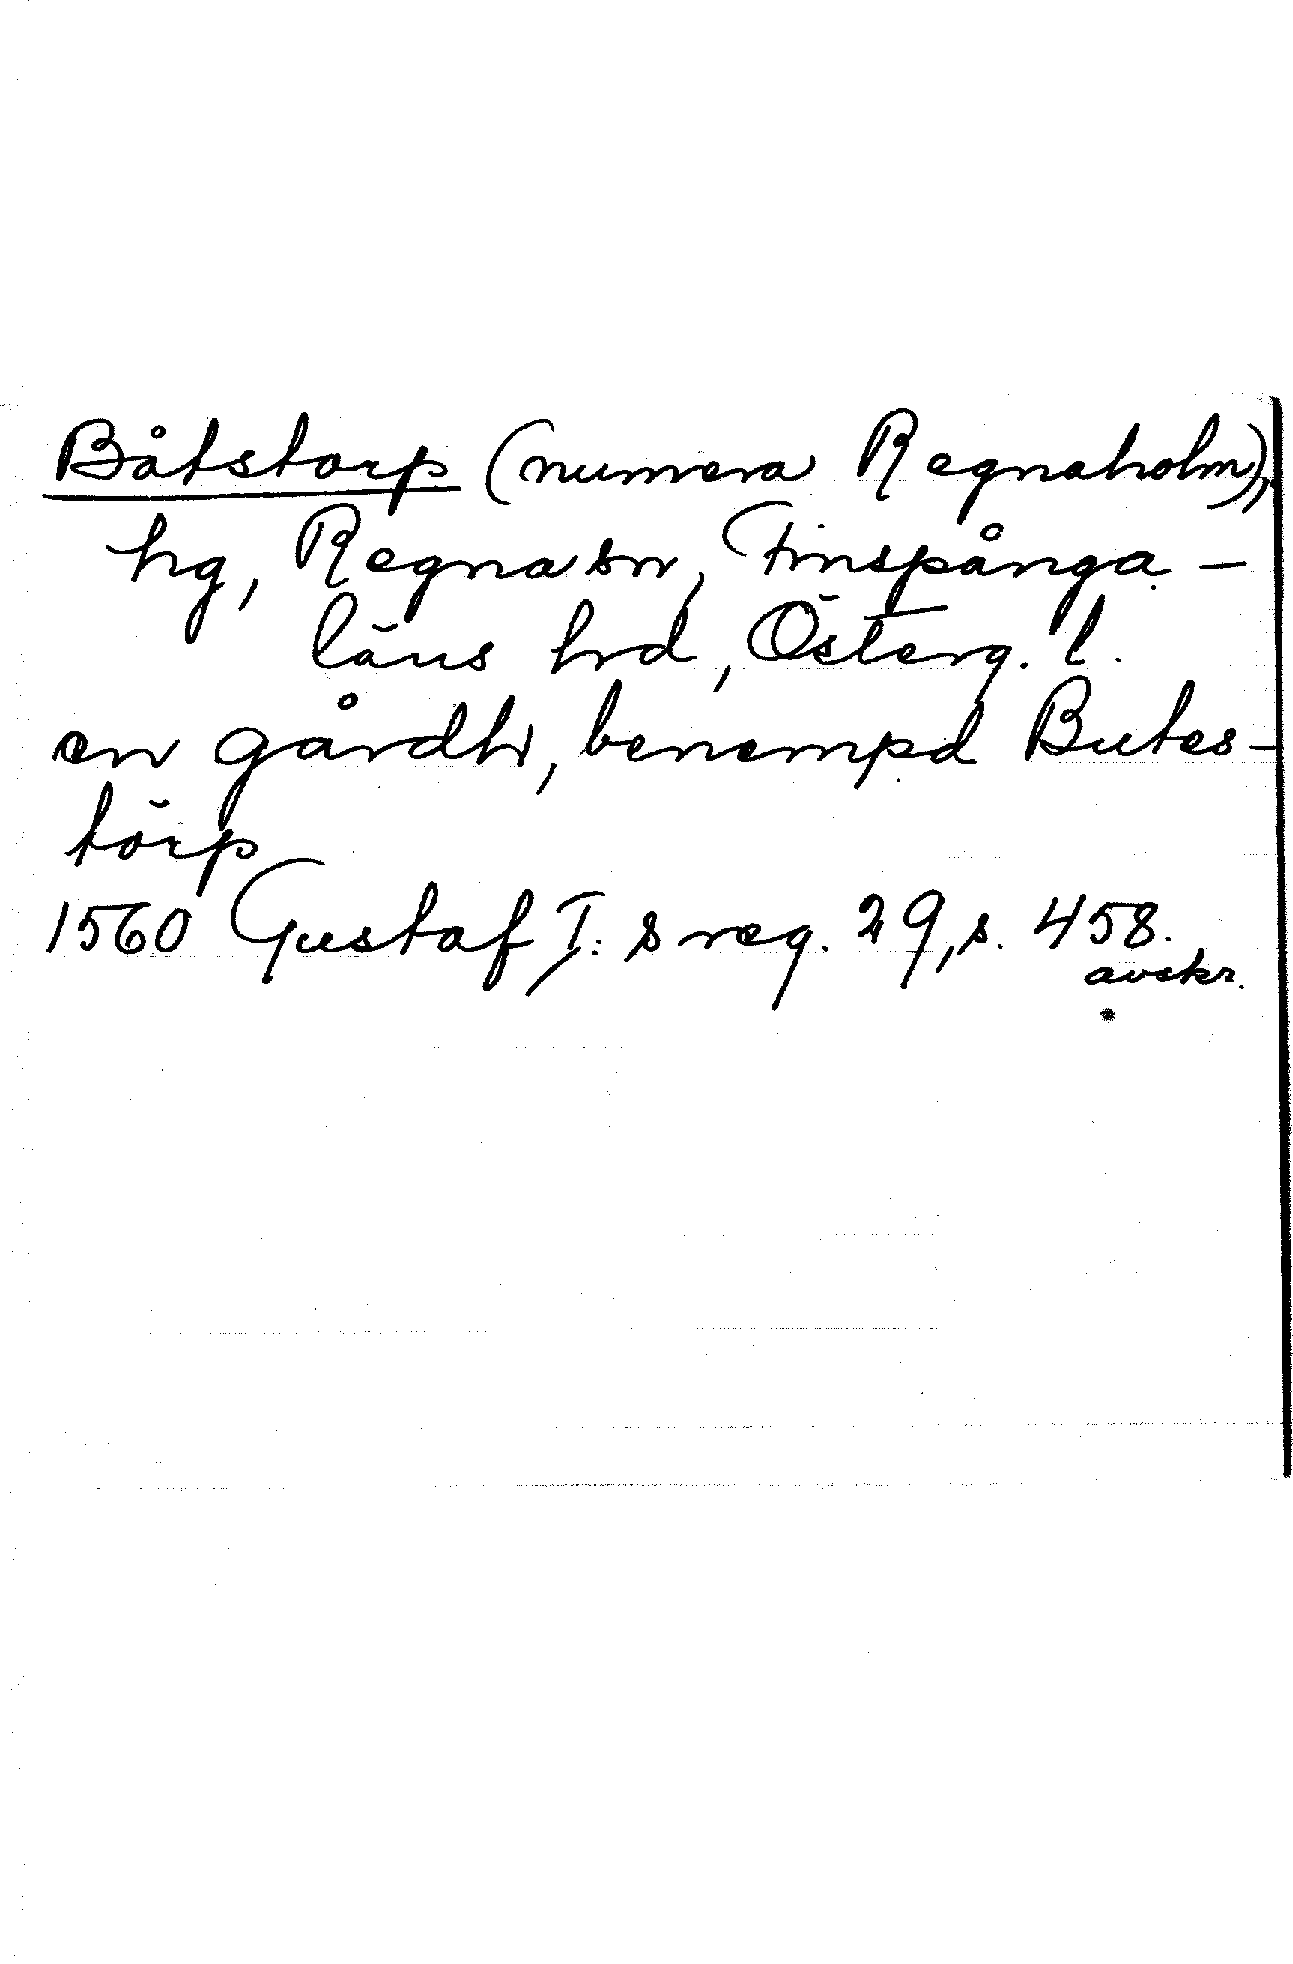 Båtstorp (numera Regnaholm),
hg, Regna sn, Finspånga-
läns hrd, Österg. l.
en gårdh, benempd Butes-
törp
1560 Gustaf I:s reg. 29, s. 458.
avskr.